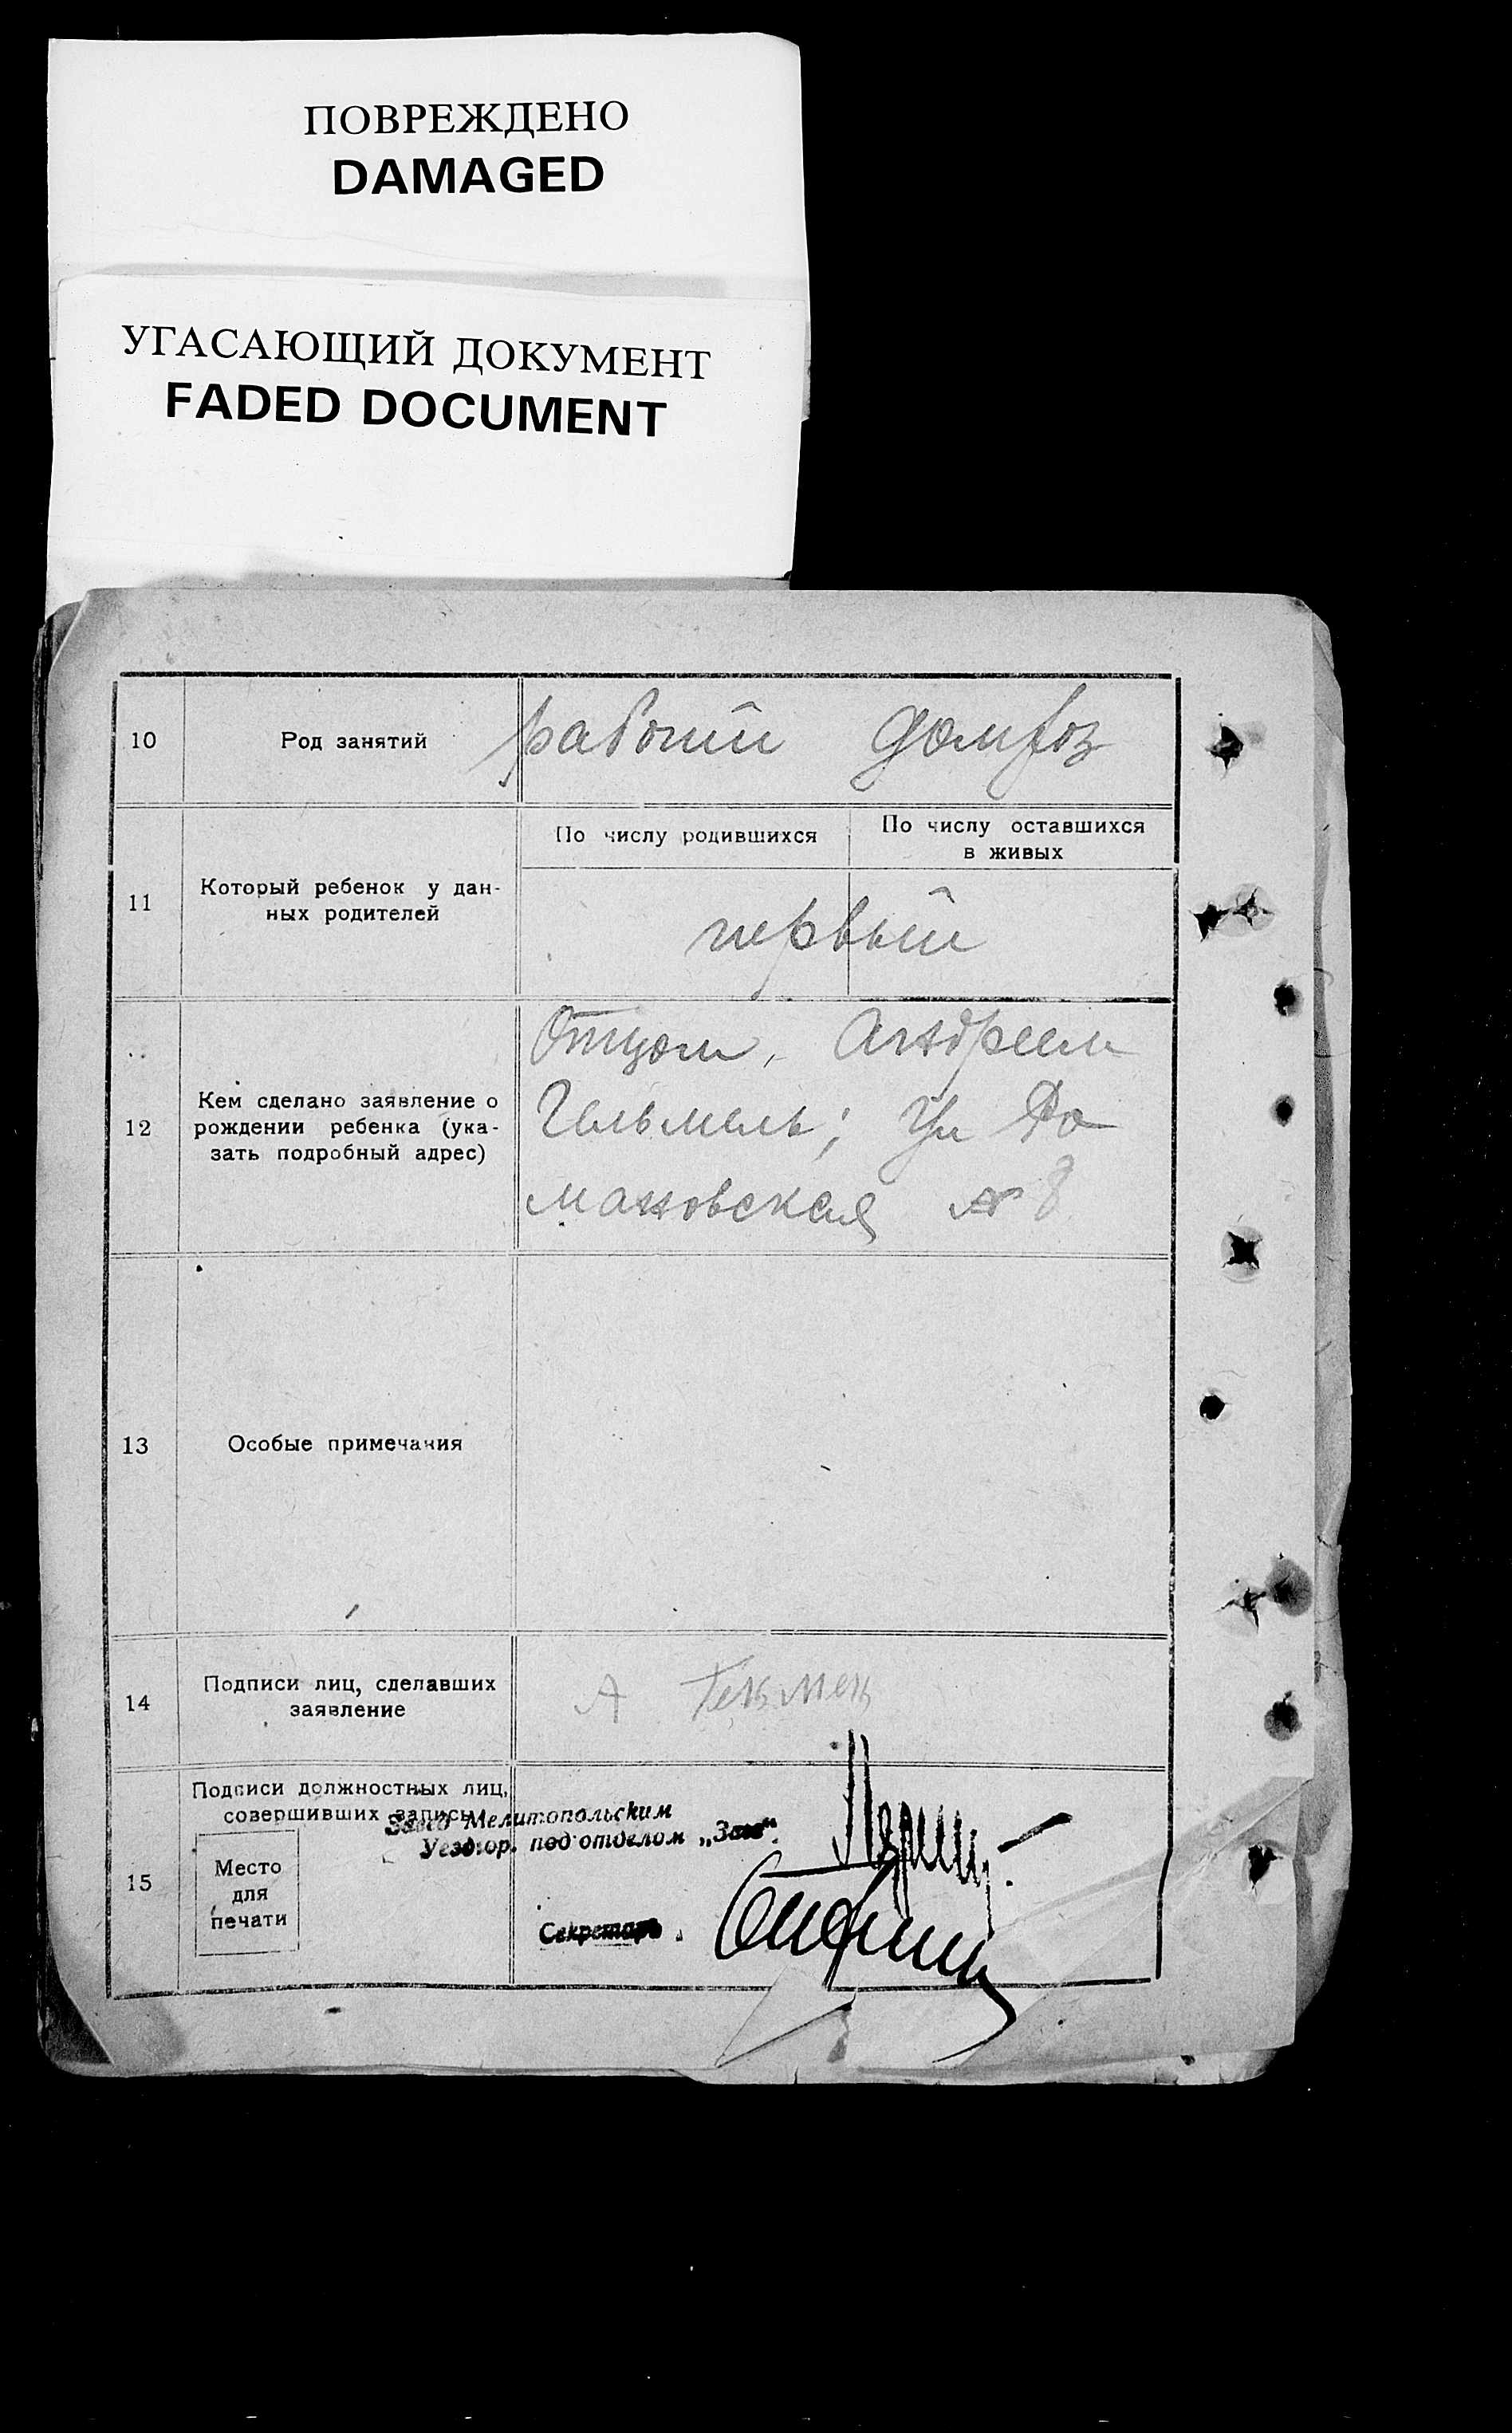 ПОВРЕЖДЕНО
DAMAGED
УГАСАЮЩИЙ ДОКУМЕНТ
FADED DOCUMENT
10 Род занятий рабочий домхоз
По числу родившихся По числу оставшихся
в живых
11 Который ребенок у дан-
ных родителей
первый
Отцом, Андреем
12 Кем сделано заявление о
рождении ребенка (ука-
зать подробный адрес)
Гельмель; Ул Ро
мановская № 8
13 Особые примечания
14 Подписи лиц, сделавших
заявление
А
15 Подписи должностных лиц,
совершивших запись
Завед Мелитопольским
Уездгор. подотделом „Загс“.
Место
для
печати
Секретарь